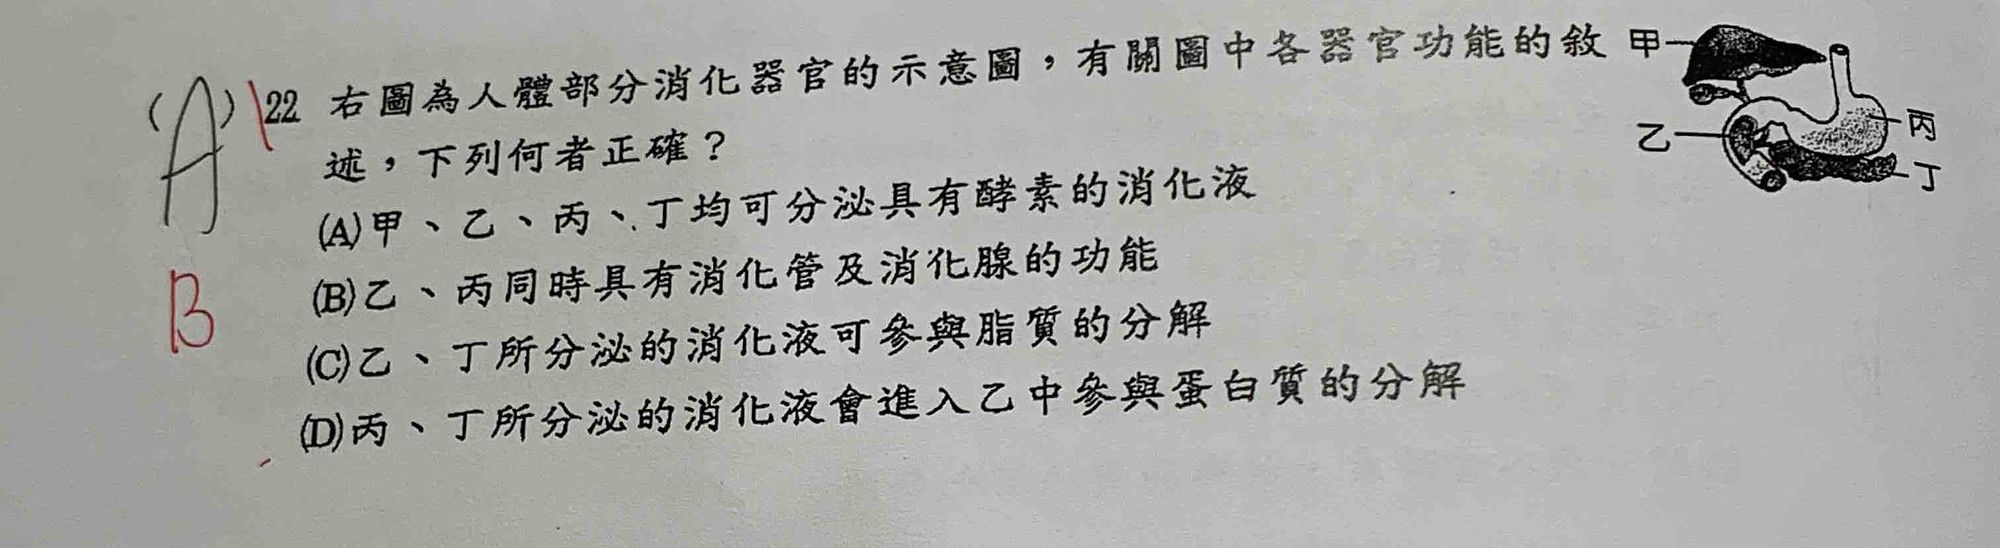 (A) 22 右圖為人體部分消化器官的示意圖，有關圖中各器官功能的敘
述，下列何者正確？
(A)甲、乙、丙、丁均可分泌具有酵素的消化液
(B)乙、丙同時具有消化管及消化腺的功能
(C)乙、丁所分泌的消化液可參與脂質的分解
(D)丙、丁所分泌的消化液會進入乙中參與蛋白質的分解
B
甲
乙
丙
丁